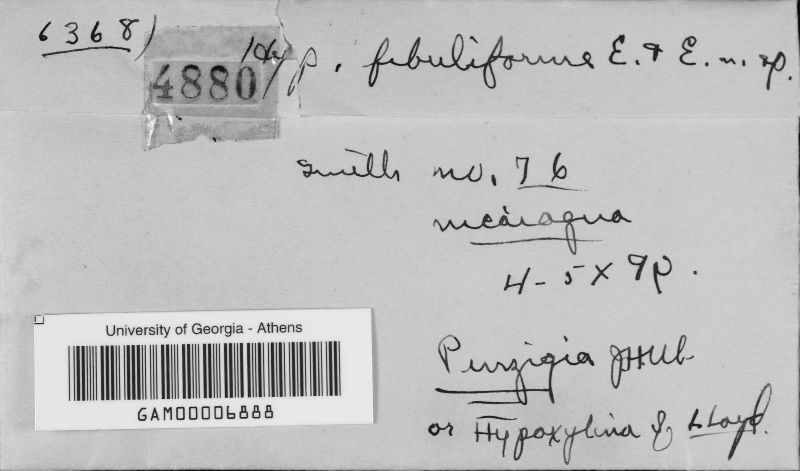 6368)
4880 Hyp. fibuliforme E. & E. n. sp.
Smith no. 76
nicaragua
4-5 x 9p.
Penzigia
or Hypoxylina of Lloyd.
University of Georgia - Athens
GAM00006888